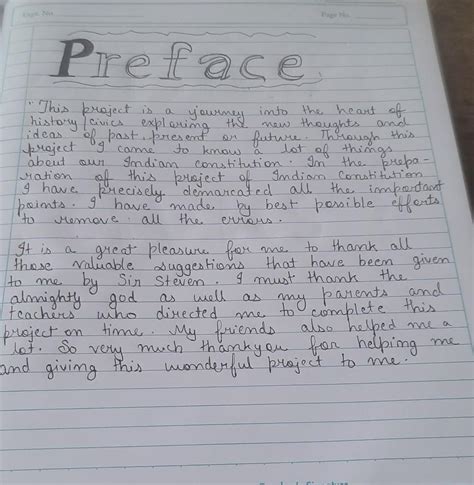 Expt. No.
Page No.
Preface
"This project is a journey into the heart of
history/civics exploring the new thoughts and
ideas of past, present or future. Through this
project I came to know a lot of things
about our Indian constitution. In the prepa-
ration of this project of Indian Constitution
I have precisely demarcated all the important
points. I have made my best possible efforts
to remove all the errors.
It is a great pleasure for me to thank all
those valuable suggestions that have been given
to me by Sir Steven. I must thank the
almighty god as well as my parents and
teachers who directed me to complete this
project on time. My friends also helped me a
lot. So very much thankyou for helping me
and giving this wonderful project to me.